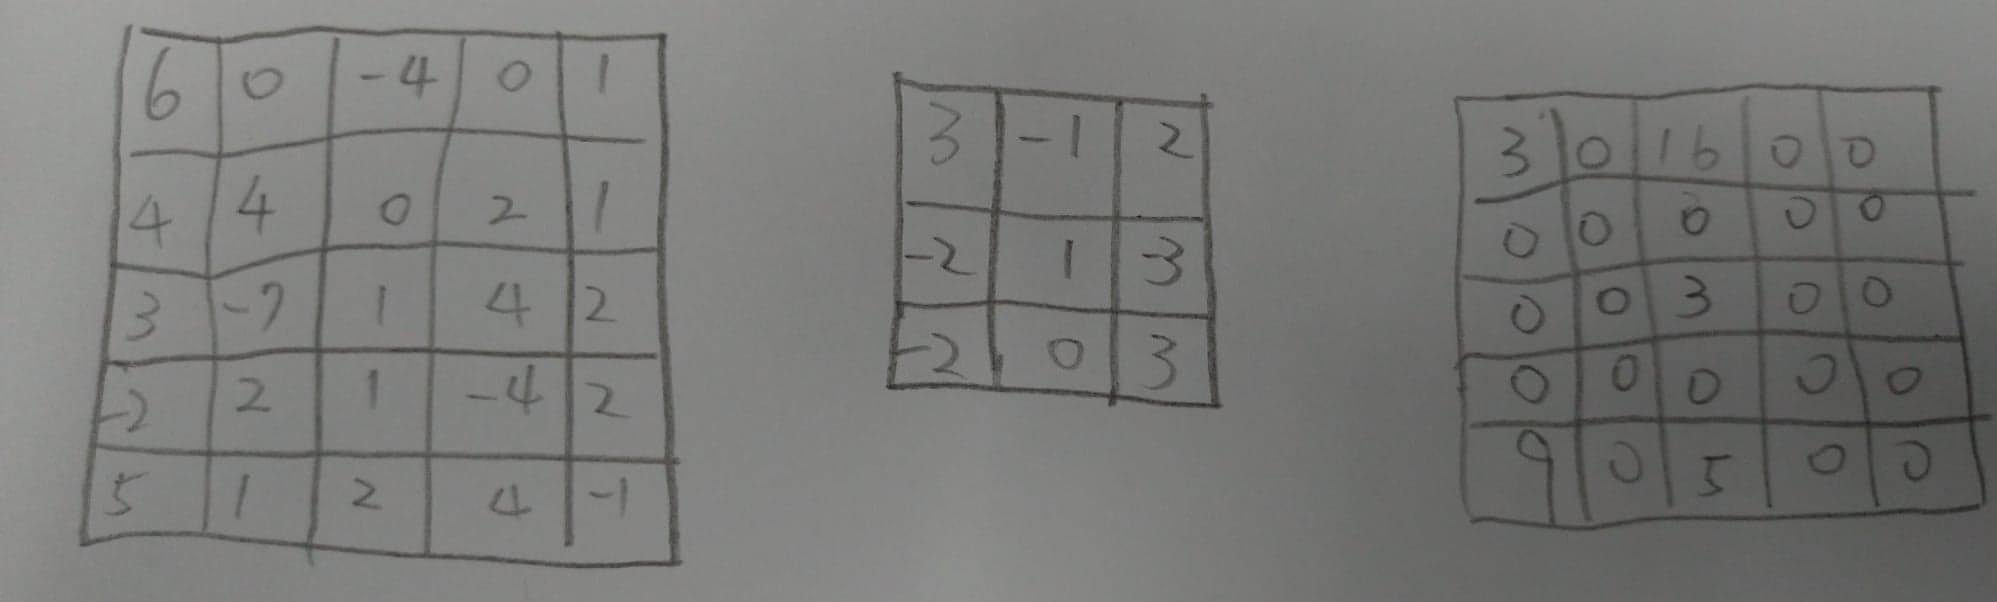 6 0 -4 0 1
4 4 0 2 1
3 -7 1 4 2
-2 2 1 -4 2
5 1 2 4 -1
3 -1 2
-2 1 3
-2 0 3
3 0 16 0 0
0 0 0 0 0
0 0 3 0 0
0 0 0 0 0
9 0 5 0 0